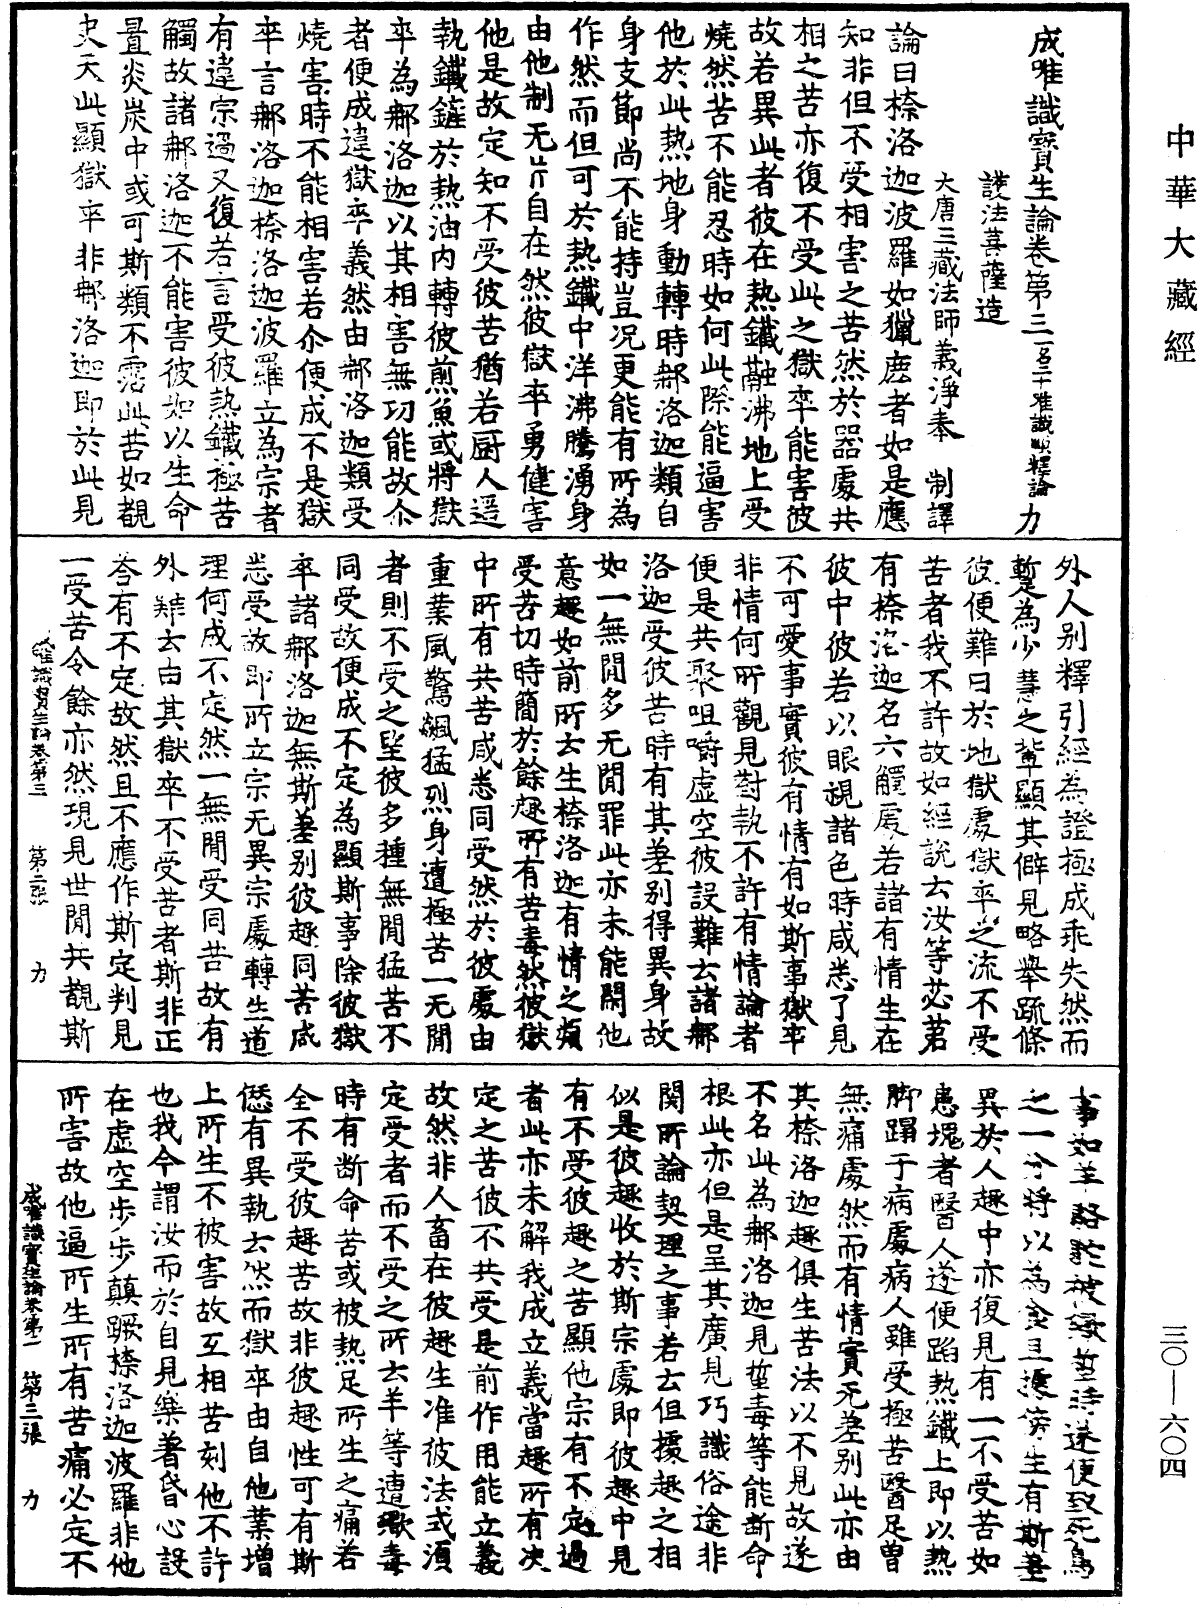 中華大藏經
成唯識寶生論卷第三一名二十唯識順釋論 力
護法菩薩造
大唐三藏法師義淨奉 制譯
論曰㮈洛迦波羅如獵鹿者如是應
知非但不受相害之苦然於器處共
相之苦亦復不受此之獄卒能害彼
故若異此者彼在熱鐵融沸地上受
燒然苦不能忍時如何此際能逼害
他於此熱地身動轉時㮈洛迦類自
身支節尚不能持豈况更能有所為
作然而但可於熱鐵中洋沸騰湧身
由他制无片自在然彼獄卒勇健害
他是故定知不受彼苦猶若厨人遥
執鐵鏟於熱油内轉彼煎魚或將獄
卒為㮈洛迦以其相害無功能故尒
者便成違獄卒義然由㮈洛迦類受
燒害時不能相害若尒便成不是獄
卒言㮈洛迦㮈洛迦波羅立為宗者
有違宗過又復若言受彼熱鐵極苦
觸故諸㮈洛迦不能害彼如以生命
置炎炭中或可斯類不露此苦如覩
史天此顯獄卒非㮈洛迦即於此見
外人別釋引經為證極成乖失然而
蹔為少慧之輩顯其僻見略舉疏條
彼便難曰於地獄處獄卒之流不受
苦者我不許故如經說云汝等苾芻
有㮈洛迦名六觸處若諸有情生在
彼中彼若以眼覩諸色時咸悉了見
不可愛事實彼有情有如斯事獄卒
非情何所觀見對執不許有情論者
便是共聚咀嚼虛空彼設難云諸㮈
洛迦受彼苦時有其差別得異身故
如一無間多无間罪此亦未能閑他
意趣如前所云生㮈洛迦有情之類
受苦切時簡於餘趣所有苦毒然彼獄
中所有共苦咸悉同受然於彼處由
重業風驚飆猛烈身遭極苦一无間
者則不受之望彼多種無間猛苦不
同受故便成不定為顯斯事除彼獄
卒諸㮈洛迦無斯差別彼趣同苦咸
悉受故即所立宗无異宗處轉生道
理何成不定然一無間受同苦故有
外難云由其獄卒不受苦者斯非正
荅有不定故然且不應作斯定判見
一受苦令餘亦然現見世間共觀斯
成唯識寶生論卷第三 第二張 力
事如羊駱駝被蠍螫時遂便致死烏
之一分將以為食且據傍生有斯差
異於人趣中亦復見有一不受苦如
患塊者醫人遂便蹈熱鐵上即以熱
脚蹋于病處病人雖受極苦醫足曾
無痛處然而有情實无差別此亦由
其㮈洛迦趣俱生苦法以不見故遂
不名此為㮈洛迦見蜇毒等能斷命
根此亦但是呈其廣見巧識俗途非
関所論契理之事若云但據趣之相
似是彼趣收於斯宗處即彼趣中見
有不受彼趣之苦顯他宗有不定過
者此亦未解我成立義當趣所有決
定之苦彼不共受是前作用能立義
故然非人畜在彼趣生准彼法式須
定受者而不受之所云羊等遭蠍毒
時有斷命苦或被熱足所生之痛若
全不受彼趣苦故非彼趣性可有斯
𠎝有異執云然而獄卒由自他業增
上所生不被害故互相苦刻他不許
也我今謂汝而於自見樂著昏心設
在虛空步步顛蹶㮈洛迦波羅非他
所害故他逼所生所有苦痛必定不
成唯識寶生論卷第三 第三張 力
三〇—六〇四